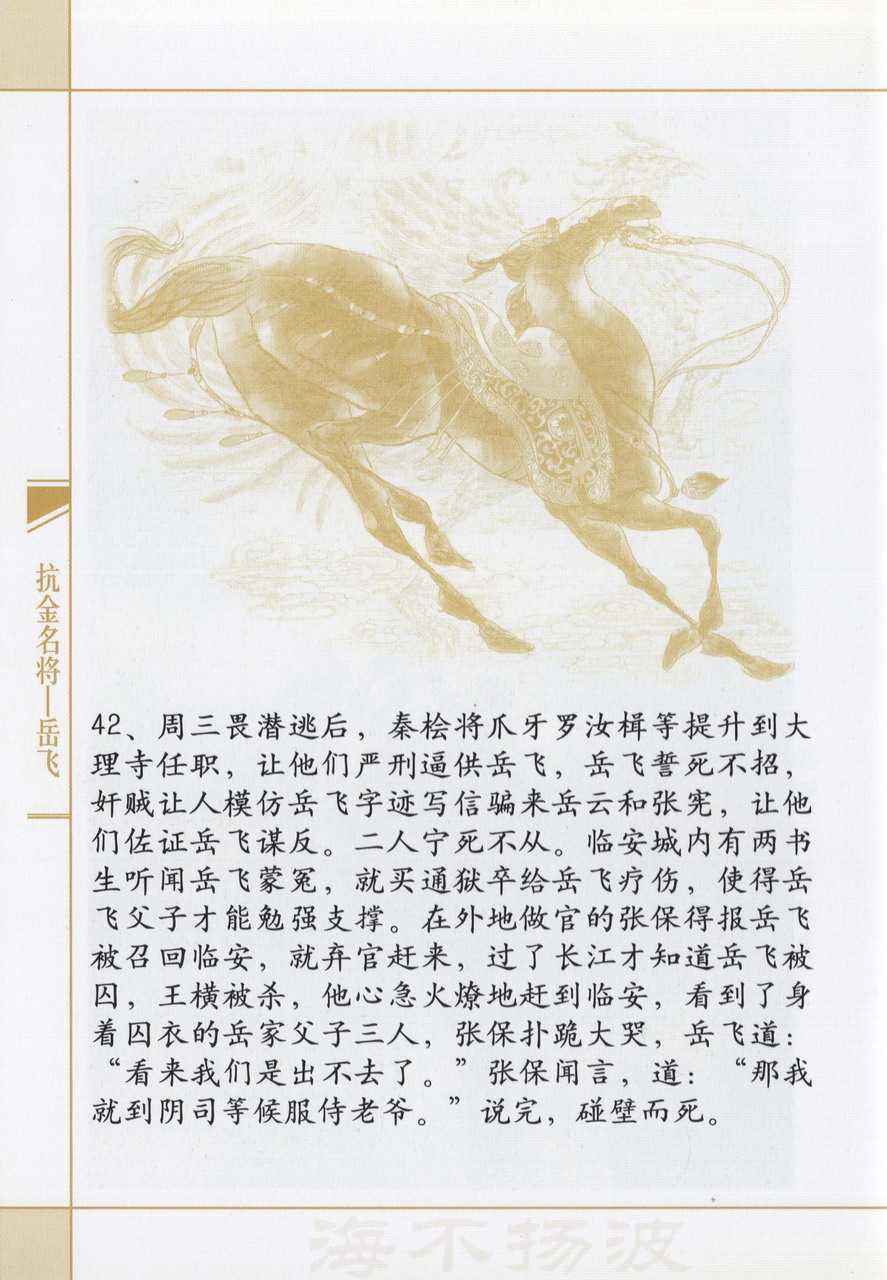 抗金名将—岳飞
42、周三畏潜逃后，秦桧将爪牙罗汝楫等提升到大
理寺任职，让他们严刑逼供岳飞，岳飞誓死不招，
奸贼让人模仿岳飞字迹写信骗来岳云和张宪，让他
们佐证岳飞谋反。二人宁死不从。临安城内有两书
生听闻岳飞蒙冤，就买通狱卒给岳飞疗伤，使得岳
飞父子才能勉强支撑。在外地做官的张保得报岳飞
被召回临安，就弃官赶来，过了长江才知道岳飞被
囚，王横被杀，他心急火燎地赶到临安，看到了身
着囚衣的岳家父子三人，张保扑跪大哭，岳飞道：
“看来我们是出不去了。”张保闻言，道：“那我
就到阴司等候服侍老爷。”说完，碰壁而死。
海不扬波